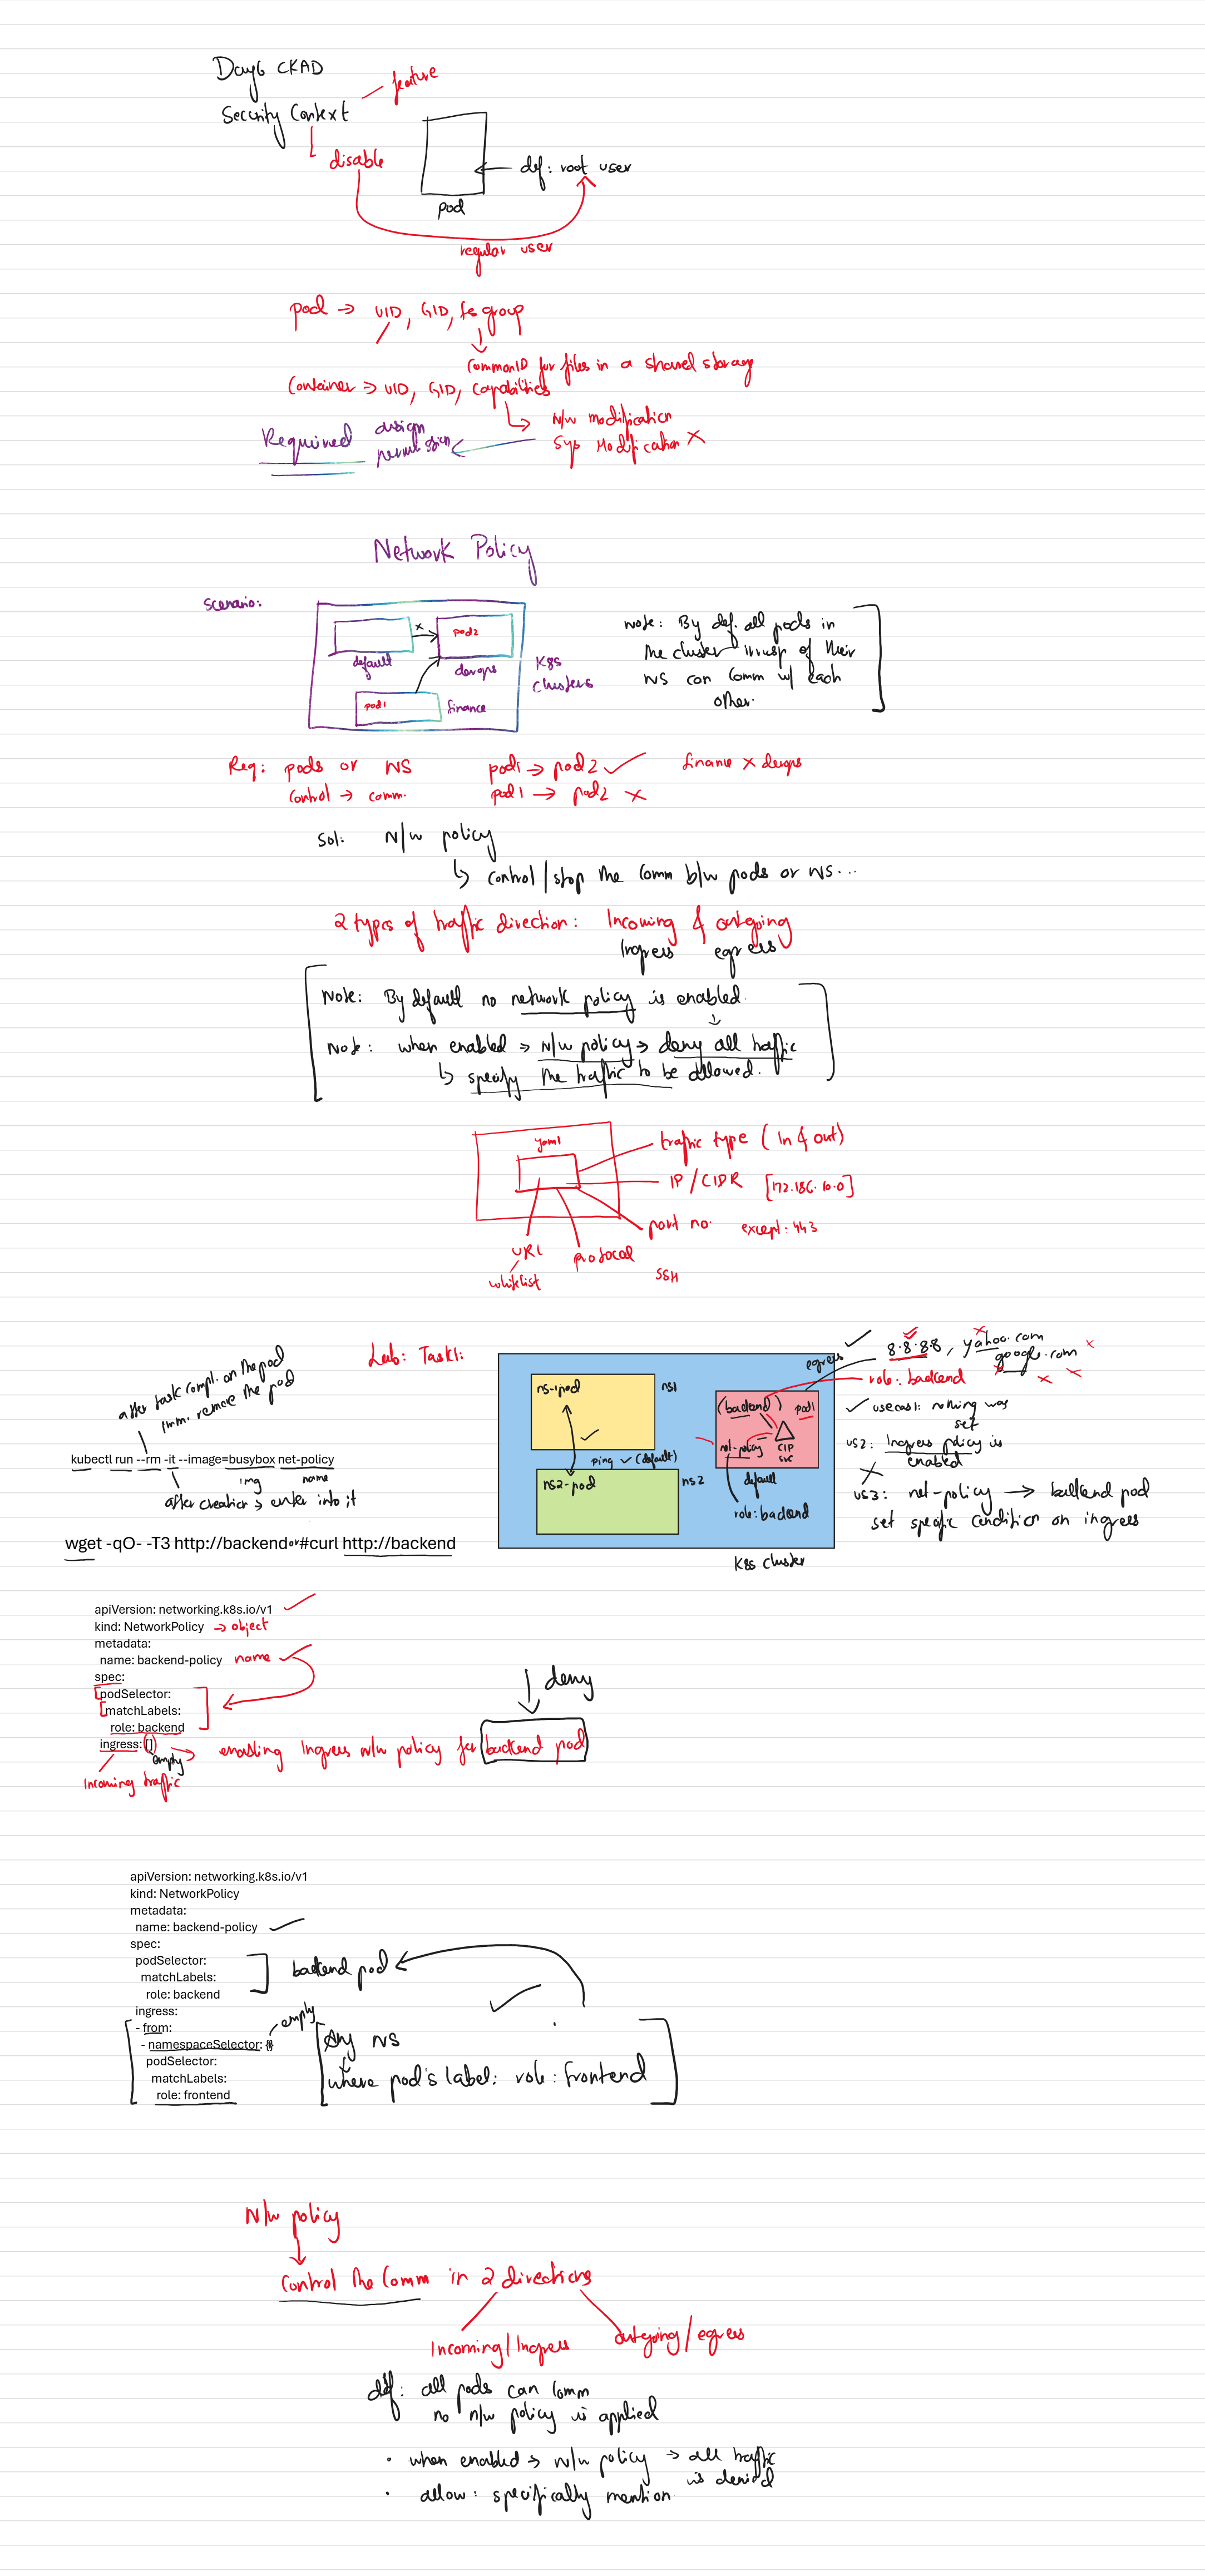 Day6 CKAD
Security Context
feature
disable
def: root user
pod
regular user
pod → UID, GID, fs group
common ID for files in a shared storage
Container → UID, GID, capabilities
N/w modification
Sys Modification X
Required
permission
Network Policy
Scenario:
x
pod2
default
devops
K8s
clusters
pod1
finance
Note: By def. all pods in
the cluster irresp of their
NS can comm w/ each
other.
Req: pods or NS
control → comm.
pod1 → pod2 ✓
pod1 → pod2 X
finance X devops
Sol: N/w policy
↳ control/stop the comm b/w pods or NS...
2 types of traffic direction: Incoming & outgoing
Ingress egress
Note: By default no network policy is enabled.
Note: when enabled → N/w policy → deny all traffic
↳ specify the traffic to be allowed.
yaml
traffic type (In & out)
IP/CIDR [172.186.10.0]
port no. except: 443
URL
whitelist
protocol
SSH
Lab: Task1:
after task compl. on the pod
imm. remove the pod
kubectl run --rm -it --image=busybox net-policy
img
name
after creation → enter into it
wget -qO- -T3 http://backend or #curl http://backend
ns-1pod
ns1
ping ✓ (default)
ns2-pod
ns2
egress
(backend)
pod1
net-policy
CIP
svc
default
role: backend
K8s cluster
8.8.8.8, yahoo.com
google.com
role: backend
usecase1: nothing was
set
us2: Ingress policy is
enabled
us3: net-policy → backend pod
set specific condition on ingress
apiVersion: networking.k8s.io/v1
kind: NetworkPolicy → object
metadata:
name: backend-policy name
spec:
podSelector:
matchLabels:
role: backend
ingress: []
empty
→ enabling Ingress n/w policy for backend pod
Incoming traffic
deny
apiVersion: networking.k8s.io/v1
kind: NetworkPolicy
metadata:
name: backend-policy
spec:
podSelector:
matchLabels:
role: backend
backend pod
ingress:
- from:
- namespaceSelector: {}
podSelector:
matchLabels:
role: frontend
empty
Any NS
where pod's label: role: frontend
N/w policy
Control the Comm in 2 directions
Incoming/Ingress
outgoing/egress
def: all pods can comm
no n/w policy is applied
• when enabled → n/w policy → all traffic
is denied
• allow: specifically mention